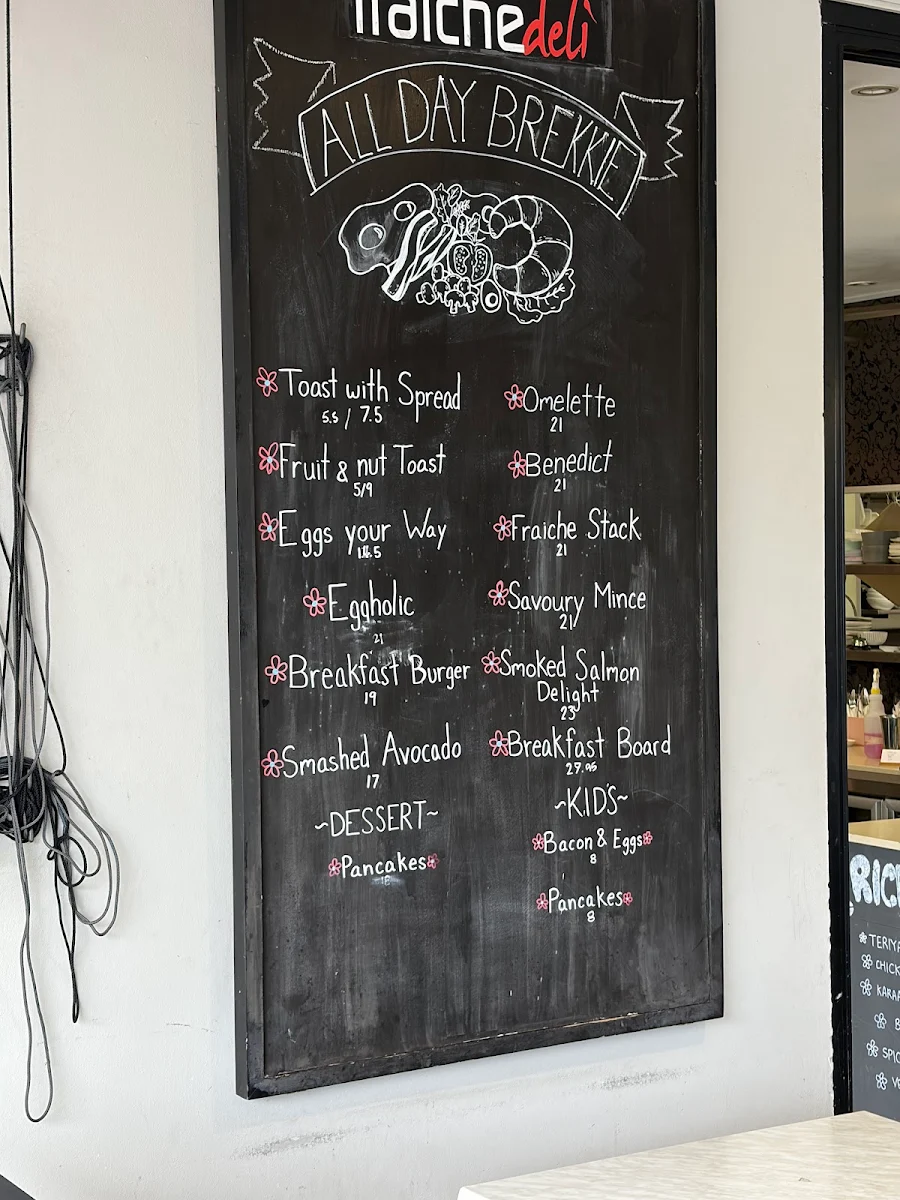 fraiche deli
ALL DAY BREKKIE
Toast with Spread
5.5 / 7.5
Fruit & nut Toast
5/9
Eggs your Way
Eggholic
21
Breakfast Burger
19
Smashed Avocado
17
~DESSERT~
Pancakes
Omelette
21
Benedict
21
Fraiche Stack
21
Savoury Mince
21
Smoked Salmon
Delight
23
Breakfast Board
29.95
~KID'S~
Bacon & Eggs
8
Pancakes
8
RIC
TERIYA
CHICK
KARAA
B
SPIC
VE